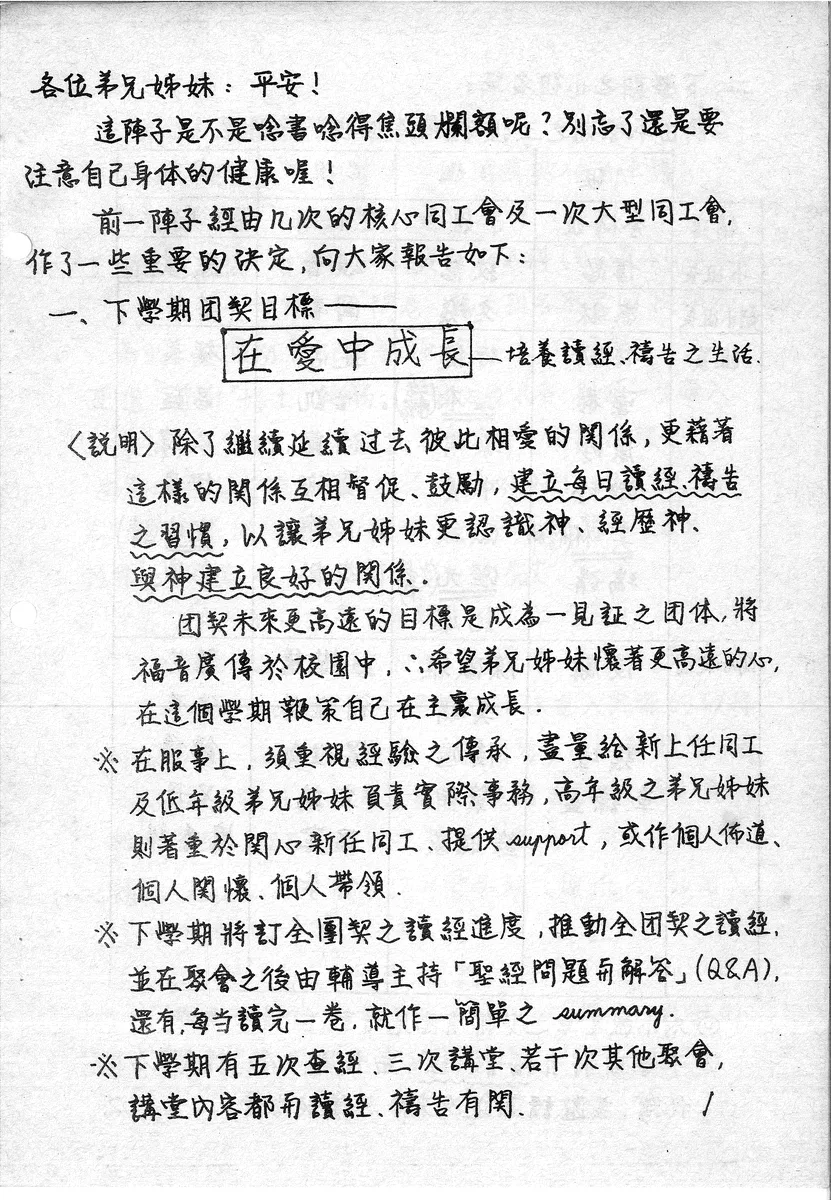 各位弟兄姊妹：平安！
這陣子是不是唸書唸得焦頭爛額呢？別忘了還是要
注意自己身体的健康喔！
前一陣子經由几次的核心同工會及一次大型同工會，
作了一些重要的決定，向大家報告如下：
一、下學期团契目標——
在愛中成長—培養讀經、禱告之生活.
〈說明〉除了繼續延續过去彼此相愛的関係，更藉著
這樣的関係互相督促、鼓勵，建立每日讀經、禱告
之習慣，以讓弟兄姊妹更認識神、經歷神、
與神建立良好的関係.
团契未來更高遠的目標是成為一見証之团体，將
福音廣傳於校園中，∴希望弟兄姊妹懷著更高遠的心，
在這個學期鞭策自己在主裏成長.
※在服事上，須重視經驗之傳承，盡量給新上任同工
及低年級弟兄姊妹負責實際事務，高年級之弟兄姊妹
則著重於関心新任同工、提供support，或作個人佈道、
個人関懷、個人帶領.
※下學期將訂全團契之讀經進度，推動全团契之讀經，
並在聚會之後由輔導主持「聖經問題解答」(Q&A)，
還有，每当讀完一卷，就作一簡單之 summary.
※下學期有五次查經、三次講堂、若干次其他聚會，
講堂內容都讀經、禱告有関.
1